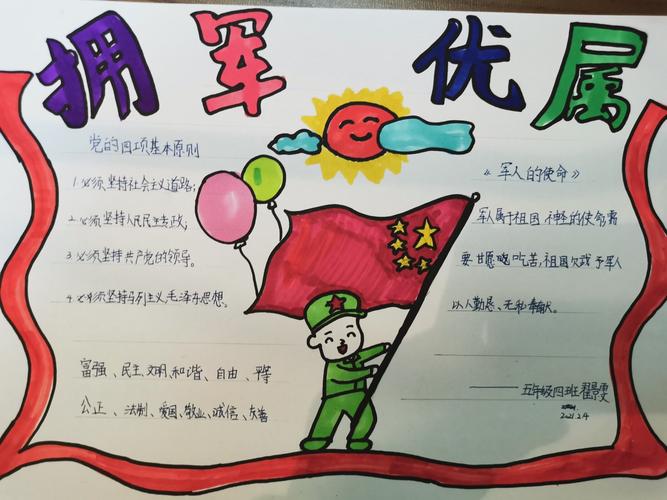 拥军 优属
党的四项基本原则
1.必须坚持社会主义道路;
2.必须坚持人民民主专政;
3.必须坚持共产党的领导。
4.必须坚持马列主义毛泽东思想。
富强、民主、文明、和谐、自由、平等
公正、法制、爱国、敬业、诚信、友善
《军人的使命》
军人属于祖国,神圣的使命需
要甘愿吃苦,祖国 予军人
以人勤恳、无私奉献。
——五年级四班
2021.2.4